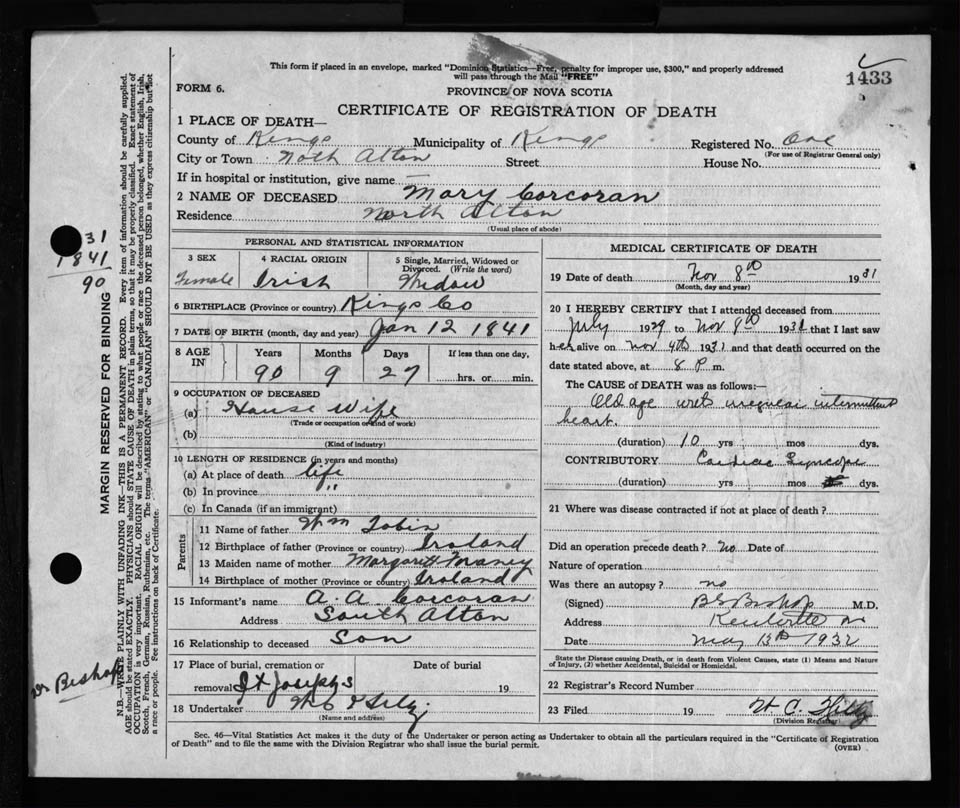 This form if placed in an envelope, marked "Dominion Statistics—Free, penalty for improper use, $300," and properly addressed
will pass through the Mail "FREE"
1433
FORM 6.
PROVINCE OF NOVA SCOTIA
CERTIFICATE OF REGISTRATION OF DEATH
1 PLACE OF DEATH—
County of Kings Municipality of Kings Registered No. One
(For use of Registrar General only)
City or Town North Alton Street House No.
If in hospital or institution, give name —
2 NAME OF DECEASED Mary Corcoran
Residence North Alton
(Usual place of abode)
PERSONAL AND STATISTICAL INFORMATION
3 SEX 4 RACIAL ORIGIN 5 Single, Married, Widowed or
Divorced. (Write the word)
Female Irish Widow
6 BIRTHPLACE (Province or country) Kings Co
7 DATE OF BIRTH (month, day and year) Jan 12 1841
8 AGE IN Years Months Days If less than one day,
90 9 27 hrs. or min.
9 OCCUPATION OF DECEASED
(a) House Wife
(Trade or occupation or kind of work)
(b)
(Kind of industry)
10 LENGTH OF RESIDENCE (in years and months)
(a) At place of death life
(b) In province "
(c) In Canada (if an immigrant)
Parents
11 Name of father Wm Tobin
12 Birthplace of father (Province or country) Ireland
13 Maiden name of mother Margarett
14 Birthplace of mother (Province or country) Ireland
15 Informant's name A. A. Corcoran
Address South Alton
16 Relationship to deceased Son
17 Place of burial, cremation or Date of burial
removal St Josephs 19
18 Undertaker
(Name and address)
MEDICAL CERTIFICATE OF DEATH
19 Date of death Nov 8th 1931
(Month, day and year)
20 I HEREBY CERTIFY that I attended deceased from
July 1929 to Nov 8th 1931 that I last saw
her alive on Nov 4th 1931 and that death occurred on the
date stated above, at 8 P. m.
The CAUSE of DEATH was as follows:—
Old age with irregular intermittent
heart.
(duration) 10 yrs mos dys.
CONTRIBUTORY Cardiac Syncope
(duration) yrs mos dys.
21 Where was disease contracted if not at place of death?
Did an operation precede death? no Date of
Nature of operation
Was there an autopsy? no
(Signed) B S Bishop M.D.
Address Kentville
Date May 13th 1932
State the Disease causing Death, or in death from Violent Causes, state (1) Means and Nature
of Injury, (2) whether Accidental, Suicidal or Homicidal.
22 Registrar's Record Number
23 Filed 19
(Division Registrar)
Sec. 46—Vital Statistics Act makes it the duty of the Undertaker or person acting as Undertaker to obtain all the particulars required in the "Certificate of Registration
of Death" and to file the same with the Division Registrar who shall issue the burial permit.
(OVER)
31
1841
90
MARGIN RESERVED FOR BINDING
Dr Bishop
N.B.—WRITE PLAINLY WITH UNFADING INK—THIS IS A PERMANENT RECORD. Every item of information should be carefully supplied.
AGE should be stated EXACTLY. PHYSICIANS should STATE CAUSE OF DEATH in plain terms, so that it may be properly classified. Exact statement of
OCCUPATION is very important. RACIAL ORIGIN will be described by stating to what people or race the deceased person belonged, whether English, Irish,
Scotch, French, German, Russian, Ruthenian, etc. The terms "AMERICAN" or "CANADIAN" SHOULD NOT BE USED as they express citizenship but not
a race or people. See instructions on back of Certificate.